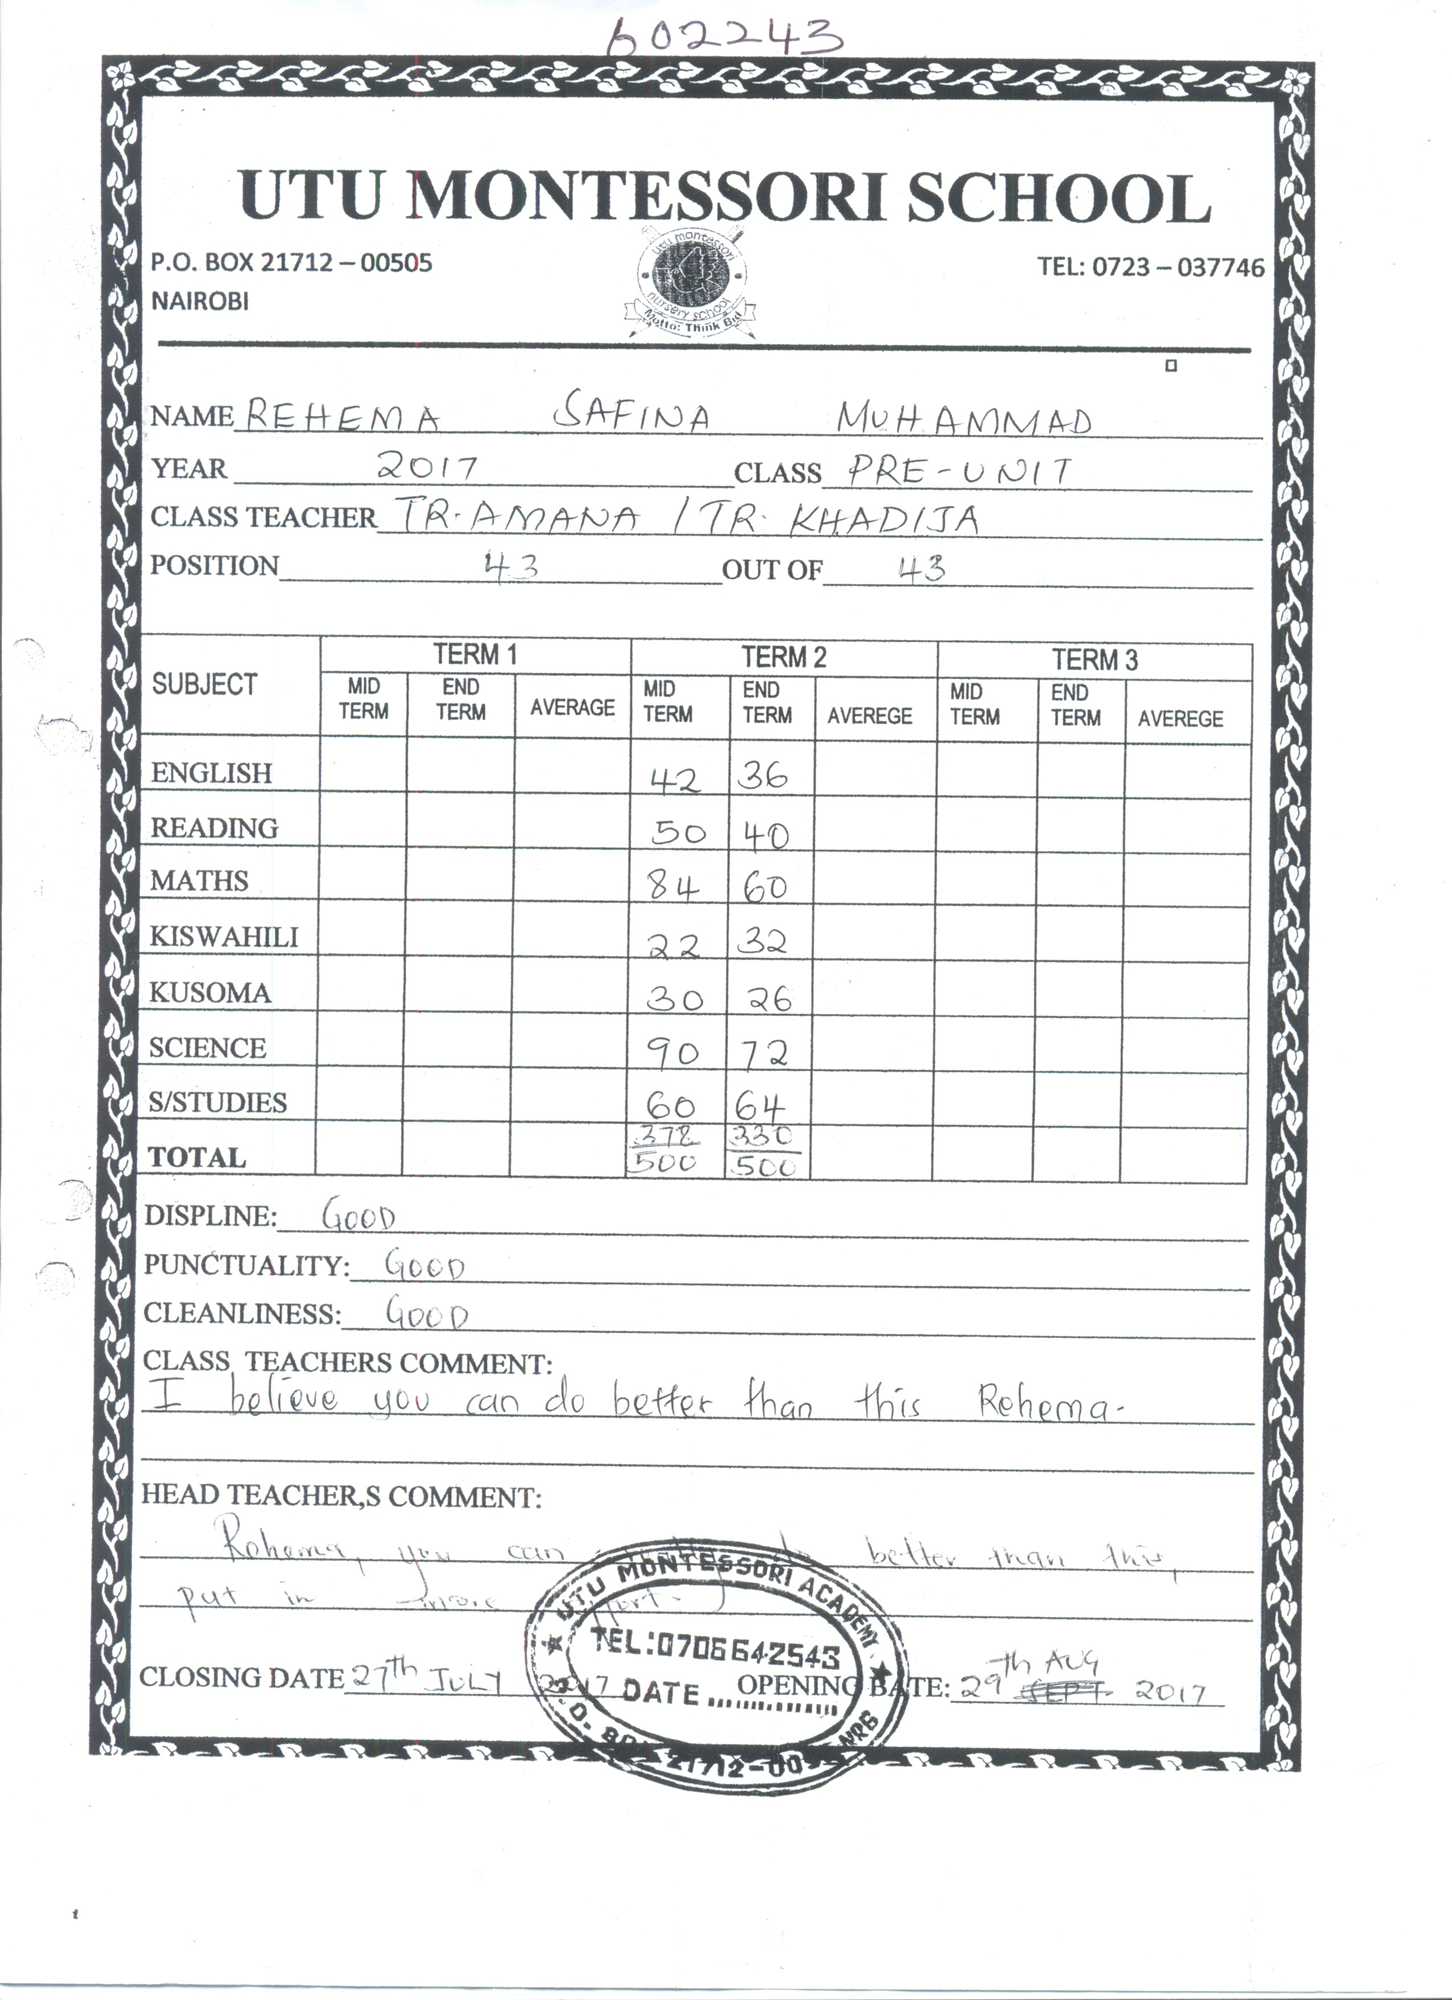 602243
UTU MONTESSORI SCHOOL
P.O. BOX 21712 – 00505
TEL: 0723 – 037746
NAIROBI
utu montessori
nursery school
Motto: Think Big
NAME REHEMA SAFINA MUHAMMAD
YEAR 2017 CLASS PRE-UNIT
CLASS TEACHER TR. AMANA / TR. KHADIJA
POSITION 43 OUT OF 43
SUBJECT TERM 1 TERM 2 TERM 3
MID TERM END TERM AVERAGE MID TERM END TERM AVEREGE MID TERM END TERM AVEREGE
ENGLISH 42 36
READING 50 40
MATHS 84 60
KISWAHILI 22 32
KUSOMA 30 26
SCIENCE 90 72
S/STUDIES 60 64
TOTAL 378/500 330/500
DISPLINE: GOOD
PUNCTUALITY: GOOD
CLEANLINESS: GOOD
CLASS TEACHERS COMMENT:
I believe you can do better than this Rehema.
HEAD TEACHER,S COMMENT:
Rehema, you can do better than this,
put in more
UTU MONTESSORI ACADEMY
TEL:0706642543
CLOSING DATE 27th JULY 2017 OPENING DATE: 29TH AUG 2017
DATE
21712-00